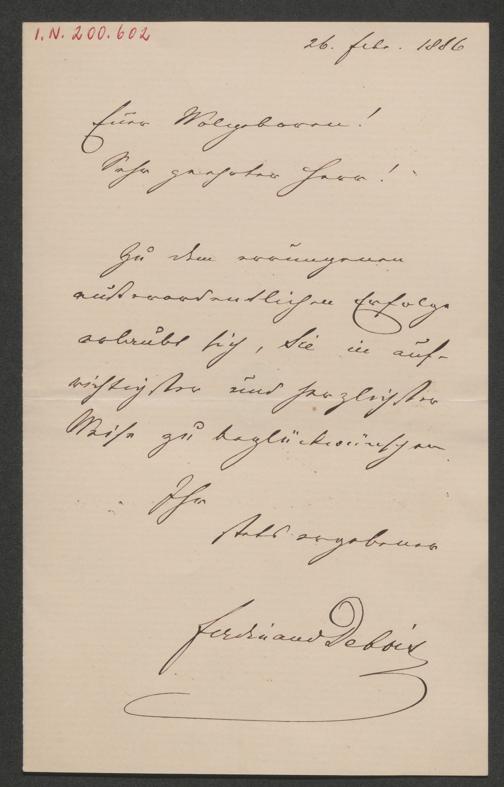 I.N. 200.602
26. Febr. 1886
Euer Wolgeboren!
Sehr geehrter Herr!
Zu dem errungenen
außerordentlichen Erfolge
erlaubt sich, Sie in auf-
richtigster und herzlichster
Weise zu beglückwünschen
Ihr
stets ergebener
Ferdinand Debois